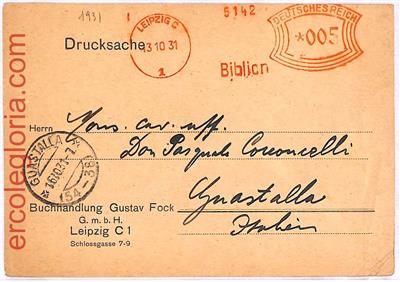 1931
5142
DEUTSCHES REICH
LEIPZIG C
13 10 31
1
*005
Drucksache
Biblion
Herrn
Mons. cav. uff.
Don Pasquale
Guastalla
Italien
GUASTALLA
(54-38)
Buchhandlung Gustav Fock
G. m. b. H.
Leipzig C 1
Schlossgasse 7-9
ercolegloria.com